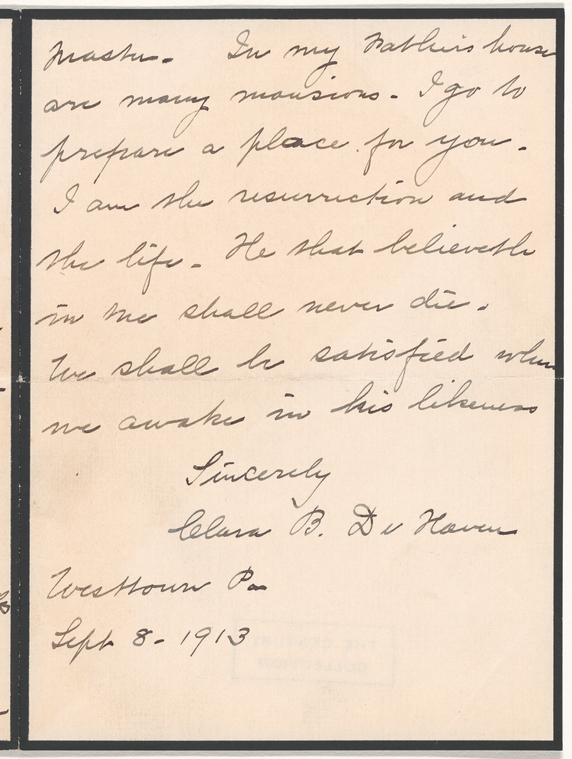 Master. In my Father's house
are many mansions. I go to
prepare a place for you.
I am the resurrection and
the life. He that believeth
in me shall never die.
We shall be satisfied when
we awake in his likeness
Sincerely
Clara B. De Haven
Westtown Pa
Sept 8-1913